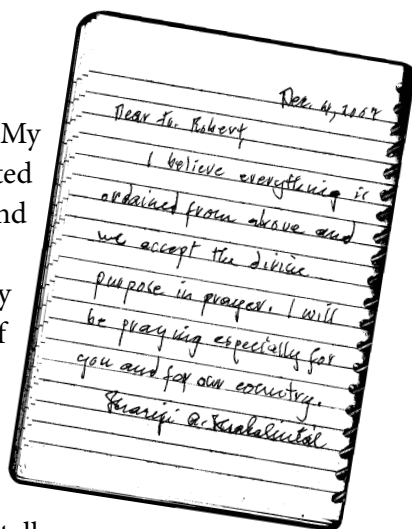 My
ted
nd
y
f
Dec. 4, 2007
Dear Fr. Robert
I believe everything is
ordained from above and
we accept the divine
purpose in prayer. I will
be praying especially for
you and for our country.
tell